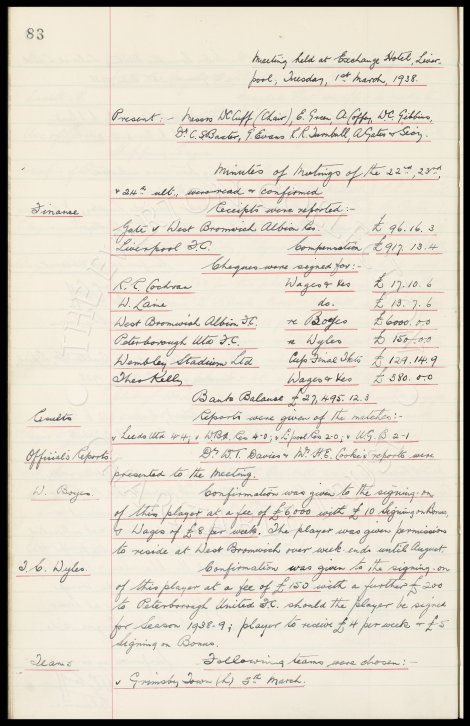 83
Meeting held at Exchange Hotel, Liver-
pool, Tuesday, 1st March, 1938.
Present :- Messrs W.C. Cuff (Chair), E. Green, A. Coffey, W.C. Gibbins,
Dr. C.S. Baxter, G. Evans, R.R. Turnbull, A. Gates & Secy.
Minutes of Meetings of the 22nd, 23rd,
& 24th ult., were read & confirmed
Finance Receipts were reported :-
Gate v West Bromwich Albion Res. £ 96. 16. 3
Liverpool F.C. Compensation £ 917. 13. 4
Cheques were signed for :-
R.E. Cochran Wages & Exs £ 17. 10. 6
W. Lane do. £ 13. 7. 6
West Bromwich Albion F.C. re Boyes £ 6000. 0. 0
Peterborough Utd F.C. re Wyles £ 150. 0. 0
Wembley Stadium Ltd Cup Final Tkts £ 129. 14. 9
Theo Kelly Wages & Exs £ 380. 0. 0
Bank Balance £ 27,495. 12. 3
Results Reports were given of the matches :-
v Leeds Utd 4-4; v W.B.A. Res 4-0; v L'pool Res 2-0; v U.G.B. 2-1
Officials Reports. Dr. W.T. Davies & Mr. H.E. Cooke's reports were
presented to the Meeting.
W. Boyes. Confirmation was given to the signing-on
of this player at a fee of £6000 with £10 Signing on Bonus
& Wages of £8 per week. The player was given permission
to reside at West Bromwich over week ends until August.
T.C. Wyles. Confirmation was given to the signing-on
of this player at a fee of £150 with a further £200
to Peterborough United F.C. should the player be signed
for season 1938-9; player to receive £4 per week & £5
Signing on Bonus.
Teams Following teams were chosen :-
v Grimsby Town (h) 5th March.